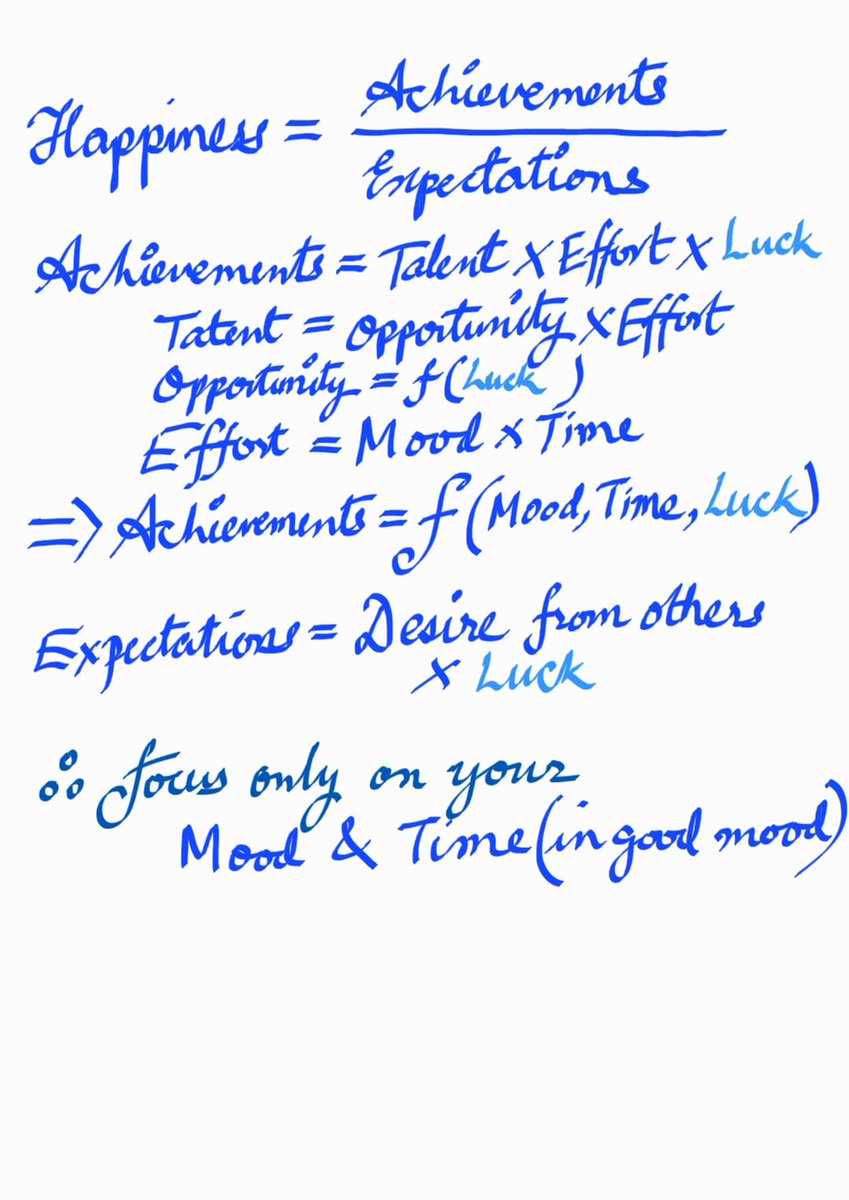 Happiness = Achievements / Expectations
Achievements = Talent x Effort x Luck
Tatent = Opportunity x Effort
Opportunity = f(Luck)
Effort = Mood x Time
=> Achievements = f(Mood, Time, Luck)
Expectations = Desire from others
x Luck
∴ focus only on your
Mood & Time (in good mood)